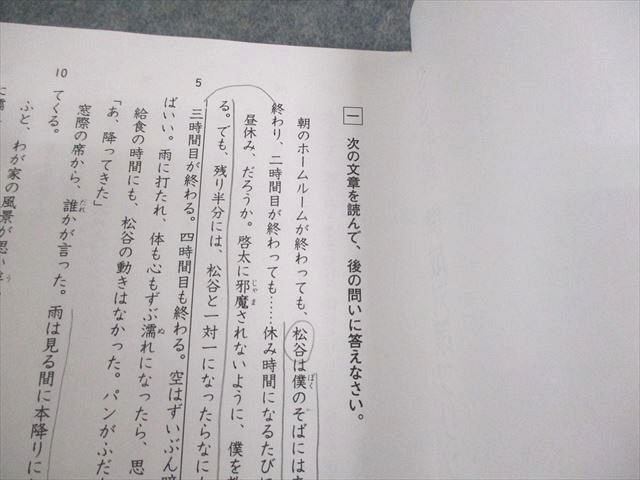 一 次の文章を読んで、後の問いに答えなさい。
朝のホームルームが終わっても、松谷は僕のそばには
終わり、二時間目が終わっても……休み時間になるたびに
昼休み、だろうか。啓太に邪魔されないように、僕を
る。でも、残り半分には、松谷と一対一になったらなに
5
三時間目が終わる。四時間目も終わる。空はずいぶん暗
ばいい。雨に打たれ、体も心もずぶ濡れになったら、思
給食の時間にも、松谷の動きはなかった。パンがふた
「あ、降ってきた」
窓際の席から、誰かが言った。雨は見る間に本降りに
10
てくる。
ふと、わが家の風景が思い